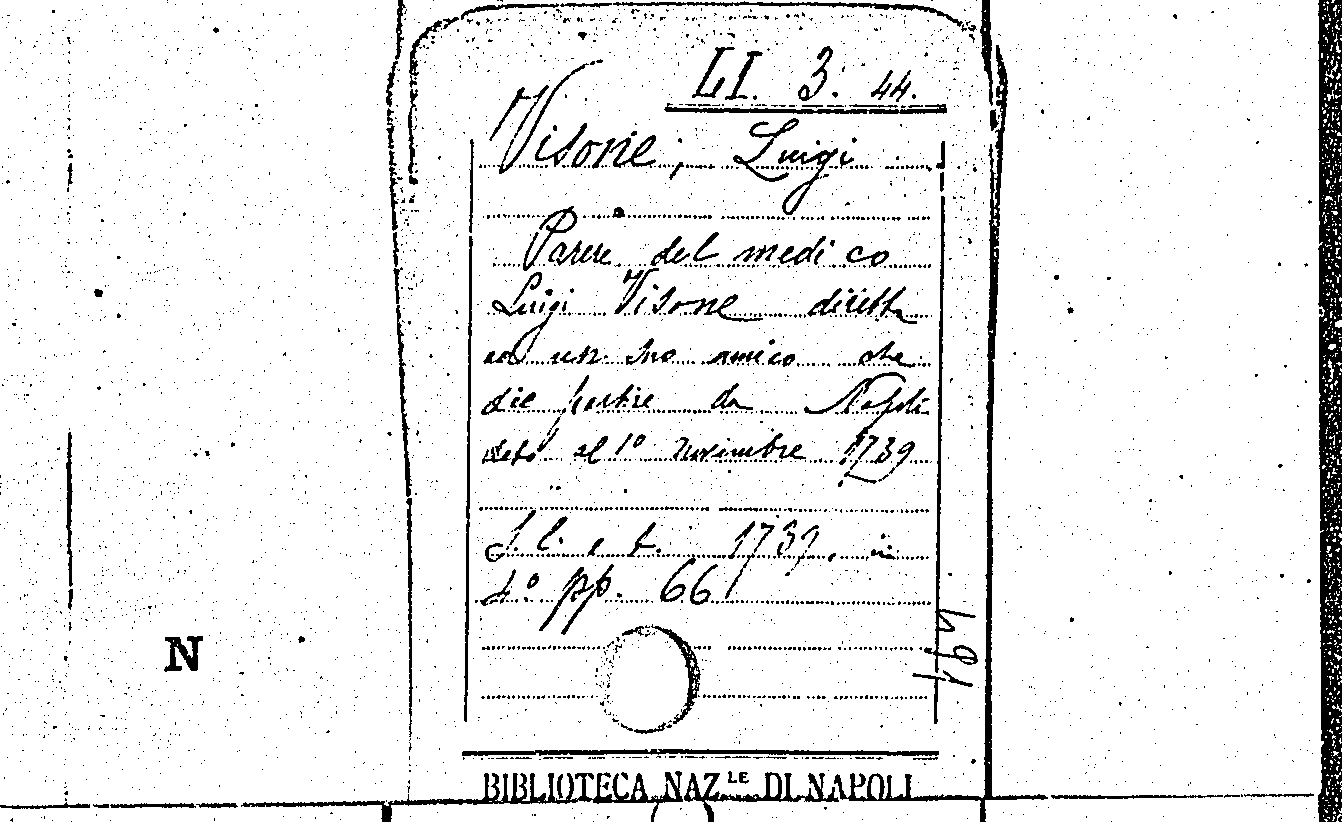 LI. 3. 44.
Visone, Luigi
Parere del medico
Luigi Visone diretto
ad un suo amico che
dee partire da Napoli
dato al 1º novembre 1739
S. l. e t. 1739, in
4º pp. 66
169
N
BIBLIOTECA NAZ.LE DI NAPOLI